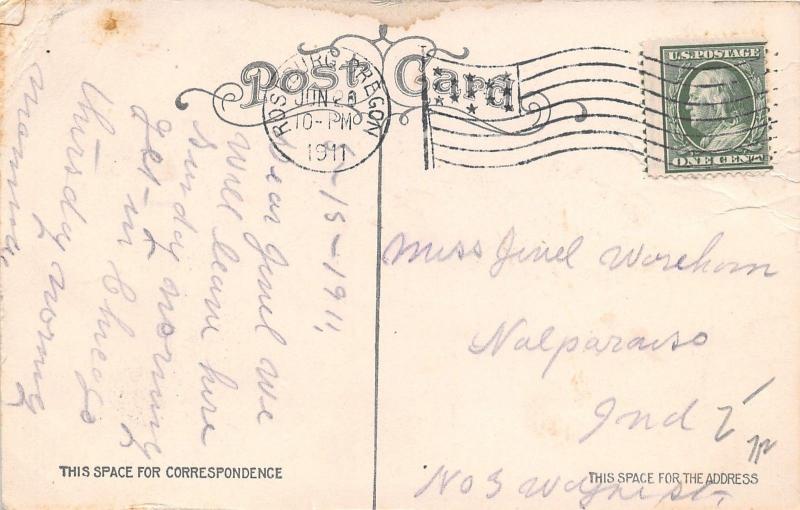 Post Card
ROSEBURG OREGON
JUN 26
10-PM
1911
U.S. POSTAGE
ONE CENT
-15-1911
Dear Jinel We
Will leave here
Sunday morning
get in Chicago
thursday morning
mamma.
Miss Jinel Worehom
Valparaiso
Ind
No 3 Wayne st.
THIS SPACE FOR CORRESPONDENCE
THIS SPACE FOR THE ADDRESS